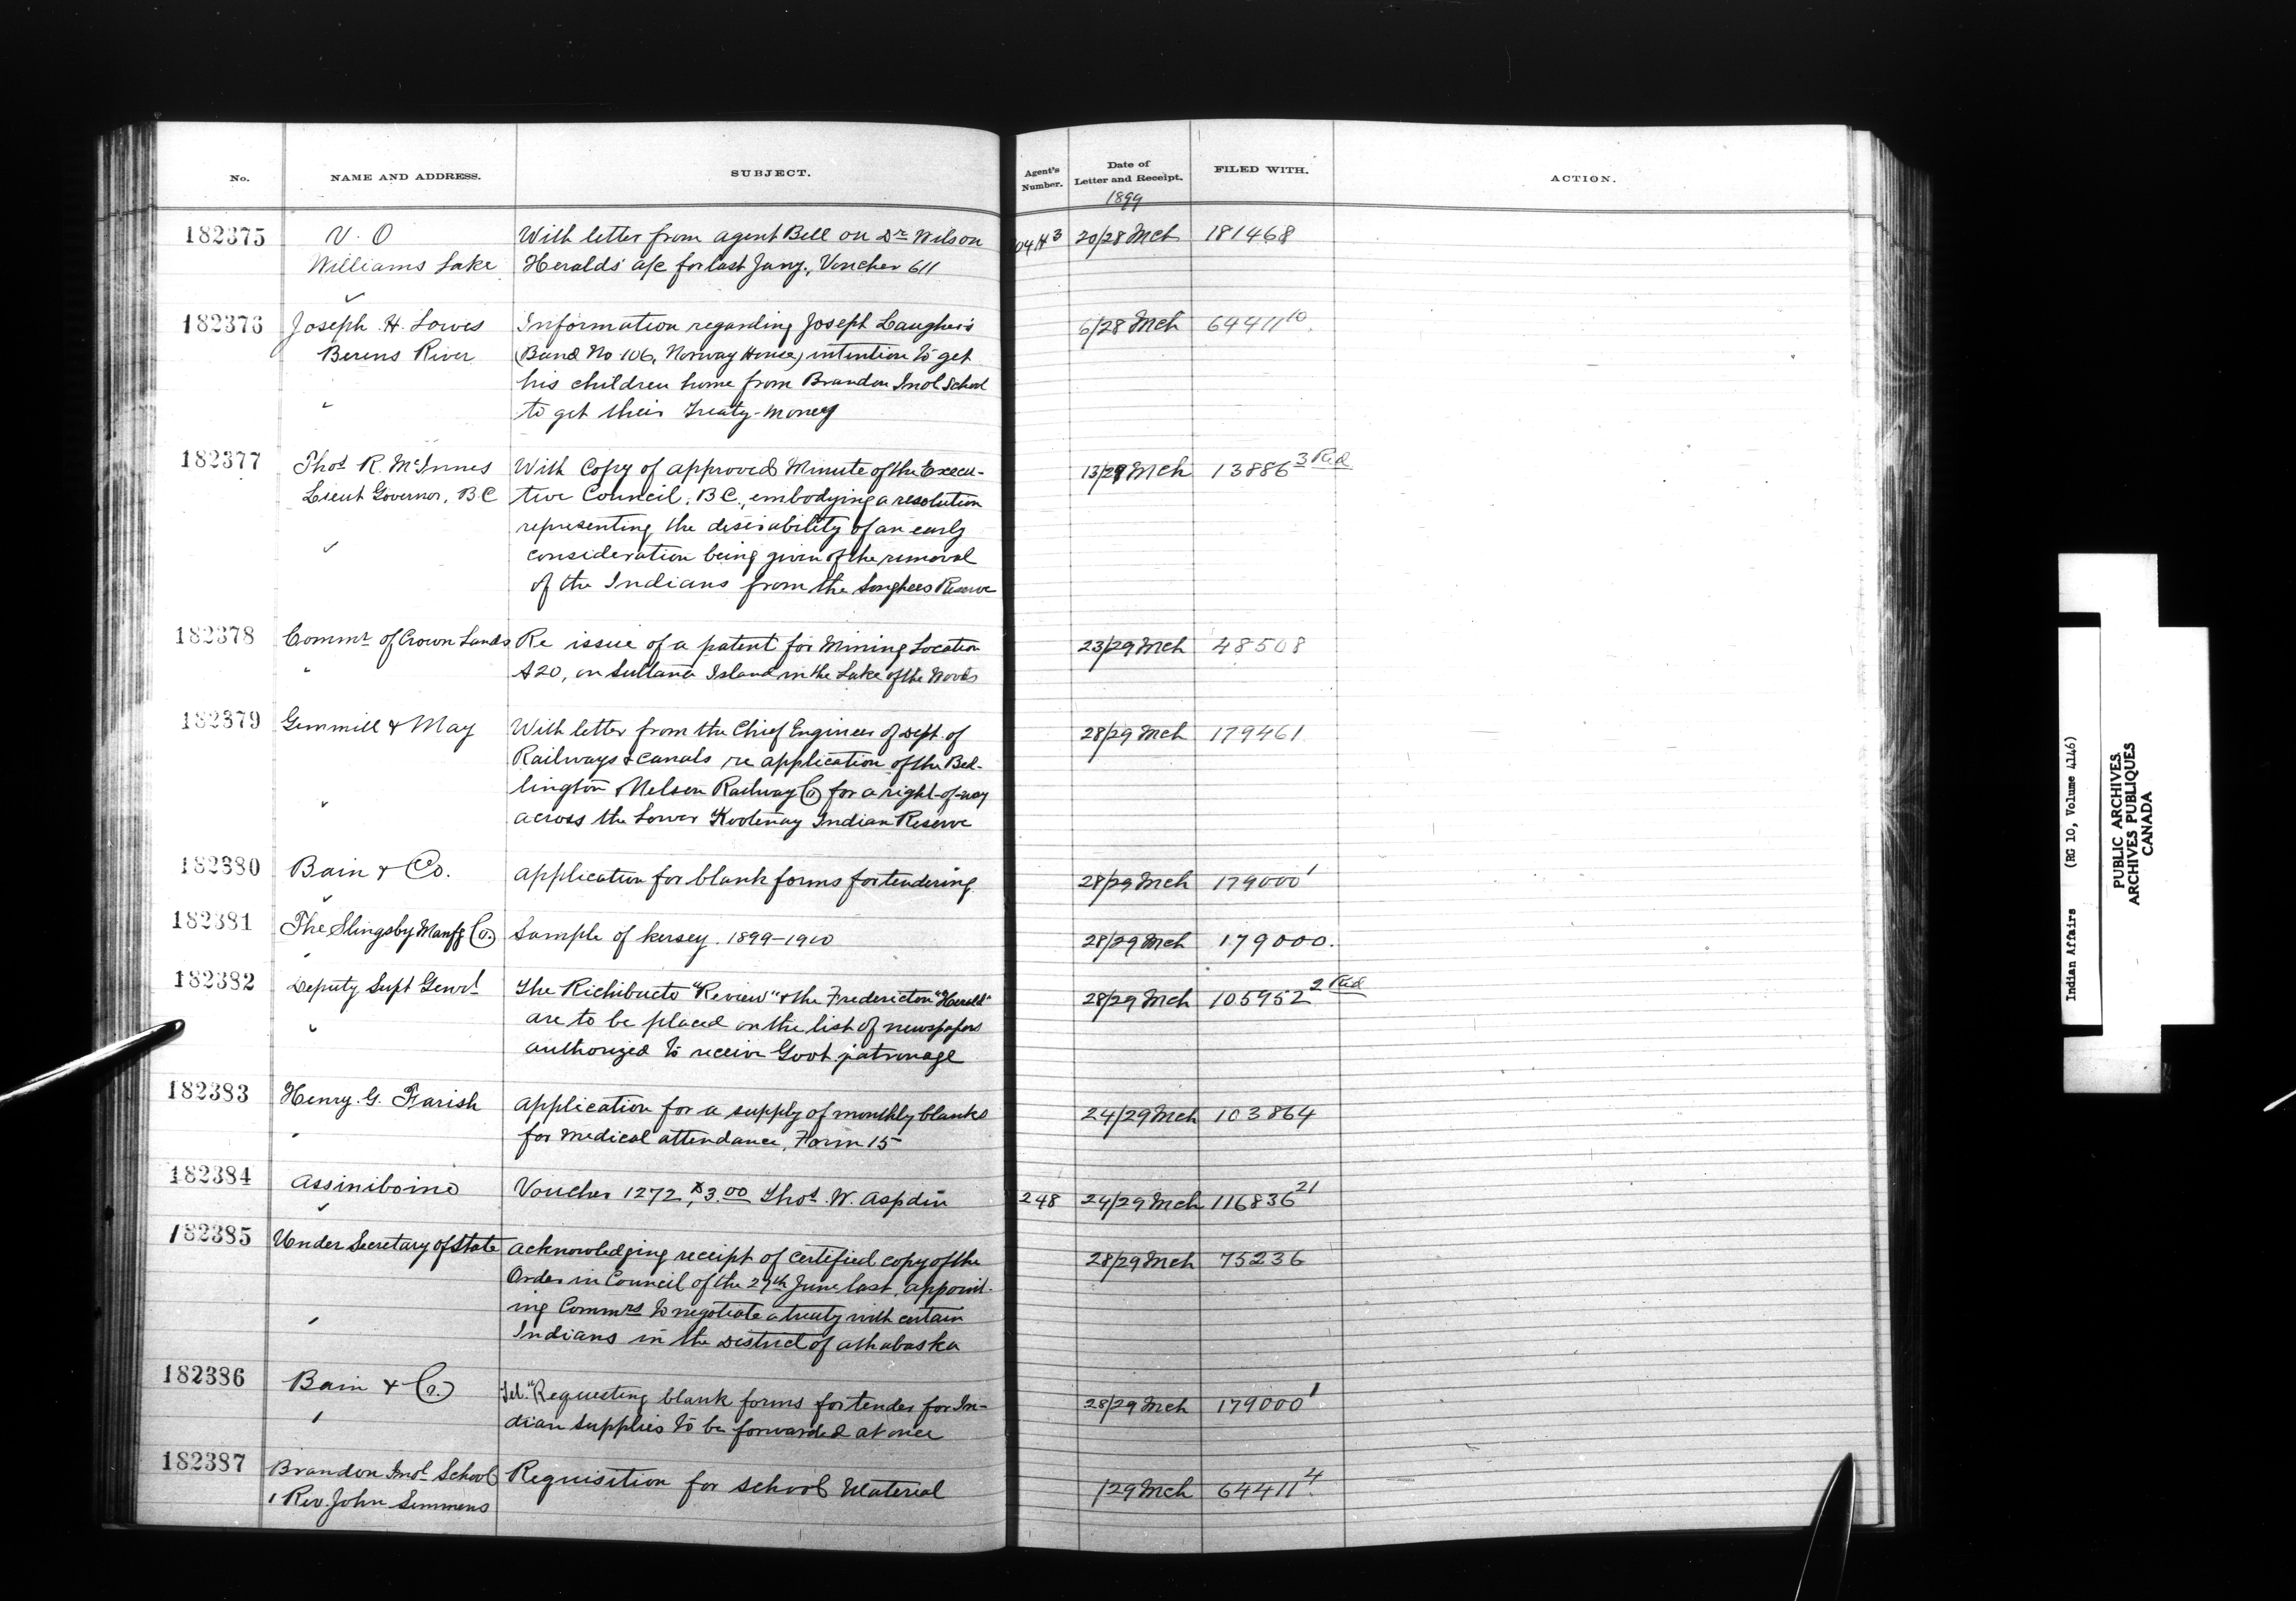 No. NAME AND ADDRESS. SUBJECT. Agent's Number. Date of Letter and Receipt. FILED WITH. ACTION.
1899
182375 V. O With letter from agent Bell on Dr Wilson 20/28 Mch 181468
Williams Lake Heralds' a/c for last Jany., Voucher 611
182376 Joseph H. Lowes Information regarding Joseph Laugher's 6/28 Mch 64411 10
Berens River (Band No 106, Norway House) intention to get
his children home from Brandon Indl School
to get their Treaty-money
182377 Thos R. McInnes With Copy of approved Minute of the Execu- 13/29 Mch 13886 3 Red
Lieut Governor, B.C. tive Council, B.C., embodying a resolution
representing the desirability of an early
consideration being given of the removal
of the Indians from the Songhees Reserve
182378 Commr of Crown Lands Re issue of a patent for Mining Location 23/29 Mch 48508
A20, on Sultana Island in the Lake of the Woods
182379 Gemmill & May With letter from the Chief Engineer of Dept. of 28/29 Mch 179461
Railways & Canals re application of the Bed-
lington & Nelson Railway Co for a right-of-way
across the Lower Kootenay Indian Reserve
182380 Bain & Co. application for blank forms for tendering 28/29 Mch 179000 1
182381 The Slingsby Manfg Co. Sample of kersey. 1899-1900 28/29 Mch 179000.
182382 Deputy Supt Genrl The Richibucto "Review" & the Fredericton "Herald" 28/29 Mch 105952 2 Red
are to be placed on the list of newspapers
authorized to receive Govt. patronage
182383 Henry. G. Farish application for a supply of monthly blanks 24/29 Mch 103864
for medical attendance, Form 15
182384 Assiniboine Voucher 1272, $3.00 Thos. W. Aspdin 248 24/29 Mch 116836 21
182385 Under Secretary of State acknowledging receipt of certified copy of the 28/29 Mch 75236
Order in Council of the 27th June last, appoint-
ing Commrs to negotiate a treaty with certain
Indians in the District of Athabaska
182386 Bain & Co. Tel. "Requesting blank forms for tender for In- 28/29 Mch 179000 1
dian supplies to be forwarded at once
182387 Brandon Indl School Requisition for school Material /29 Mch 64411 4
Rev. John Semmens
Indian Affairs (RG 10, Volume 4146)
PUBLIC ARCHIVES
ARCHIVES PUBLIQUES
CANADA